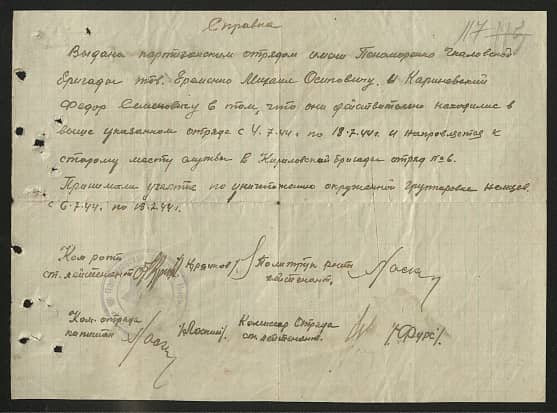 117
Справка
Выдана партизанским отрядом имени Пономаренко Чкаловской
Бригады тов. Еременко Михаил Осиповичу. и
Федор Семенович в том, что они действительно находились в
выше указанном отряде с 4.7.44г. по 18.7.44г. и направляется к
старому месту службы в Бригады отряд №6.
Принимали участие по уничтожению окруженной Группировке немцев.
с 6.7.44г. по
Ком роты
ст. лейтенант
Политрук роты
лейтенант,
Ком. отряда
капитан
Комиссар Отряда
ст. лейтенант.
/Фурс/.